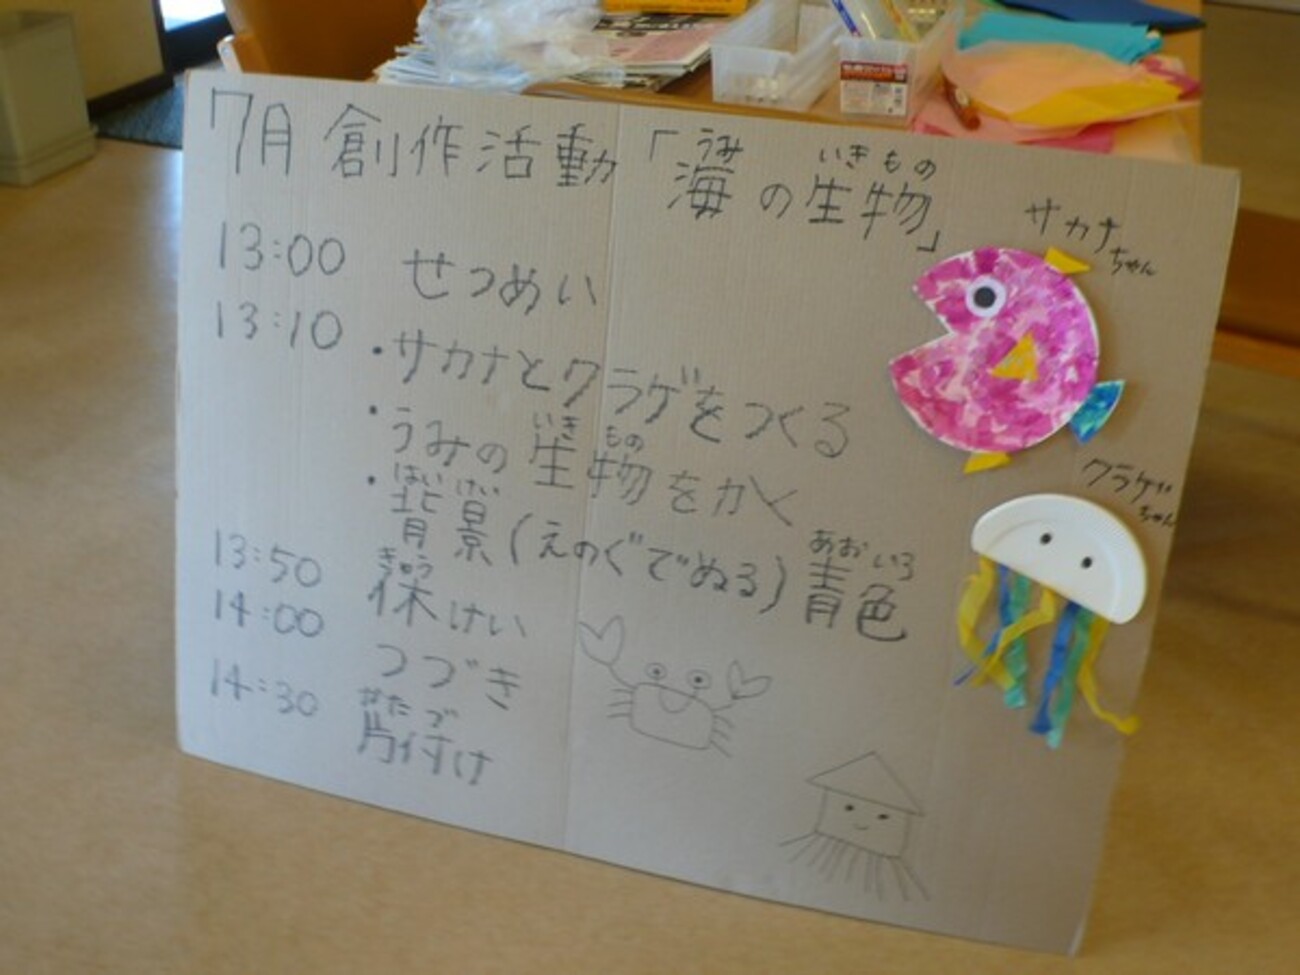 7月 創作活動「海の生物」
うみ いきもの
サカナちゃん
13:00 せつめい
13:10 ・サカナとクラゲをつくる
・うみの生物をかく
いきもの
・背景(えのぐでぬる)青色
はいけい あおいろ
クラゲちゃん
13:50 休けい
きゅう
14:00 つづき
14:30 片付け
かたづ